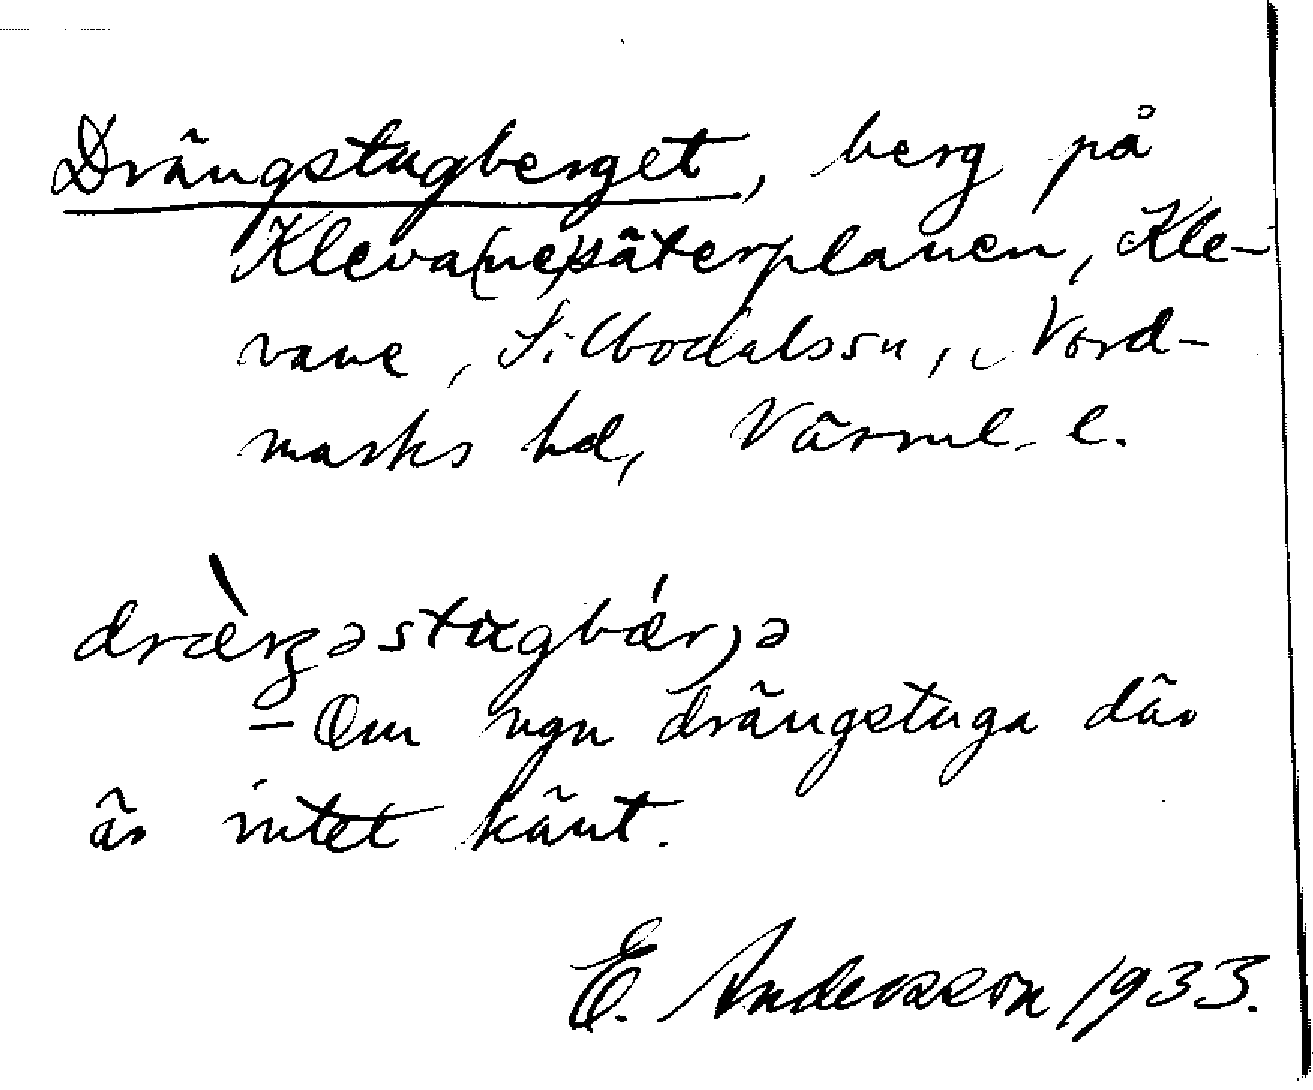 Drängstugberget, berg på
Kleva(ne)säterplanen, Kle-
vane, Silbodals sn, Nord-
marks hd, Värml. l.
— Om ngn drängstuga där
är intet känt.
E. Andersson 1933.